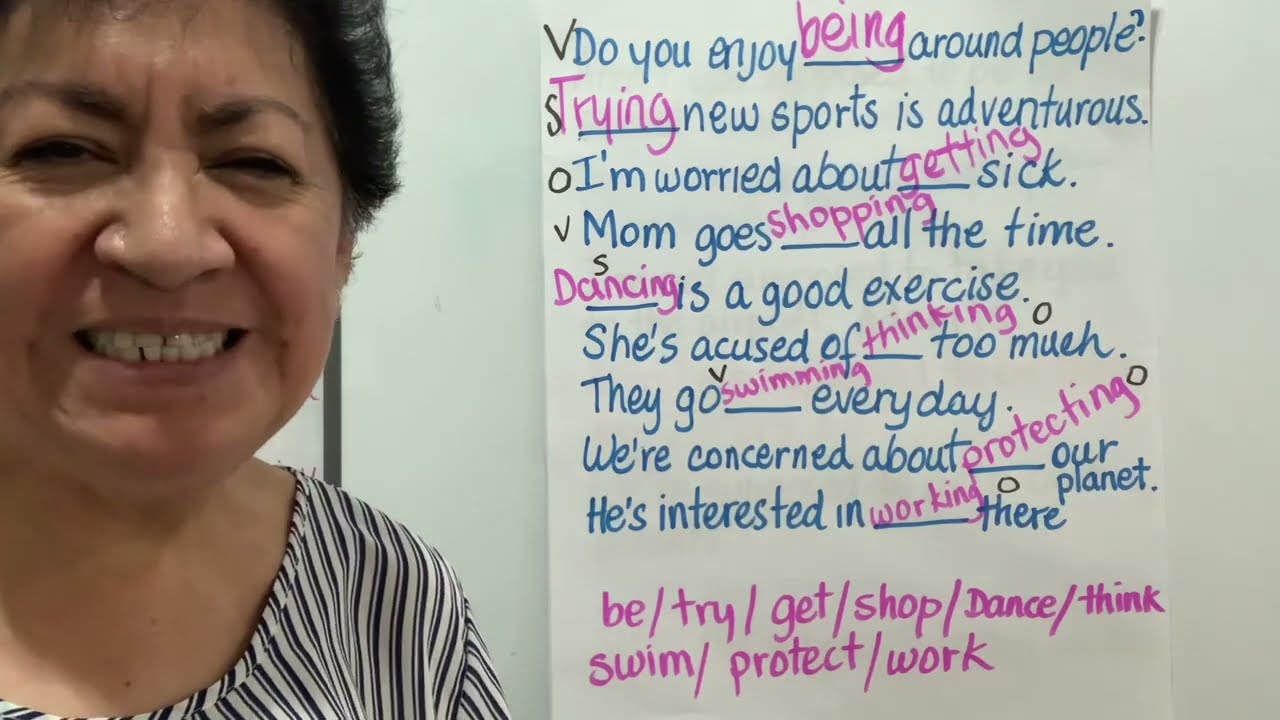 V Do you enjoy being around people?
S Trying new sports is adventurous.
O I'm worried about getting sick.
V Mom goes shopping all the time.
S
Dancing is a good exercise.
She's acused of thinking too much. O
They go swimming everyday. V
We're concerned about protecting our planet. O
He's interested in working there O
be/try/get/shop/Dance/think
swim/protect/work